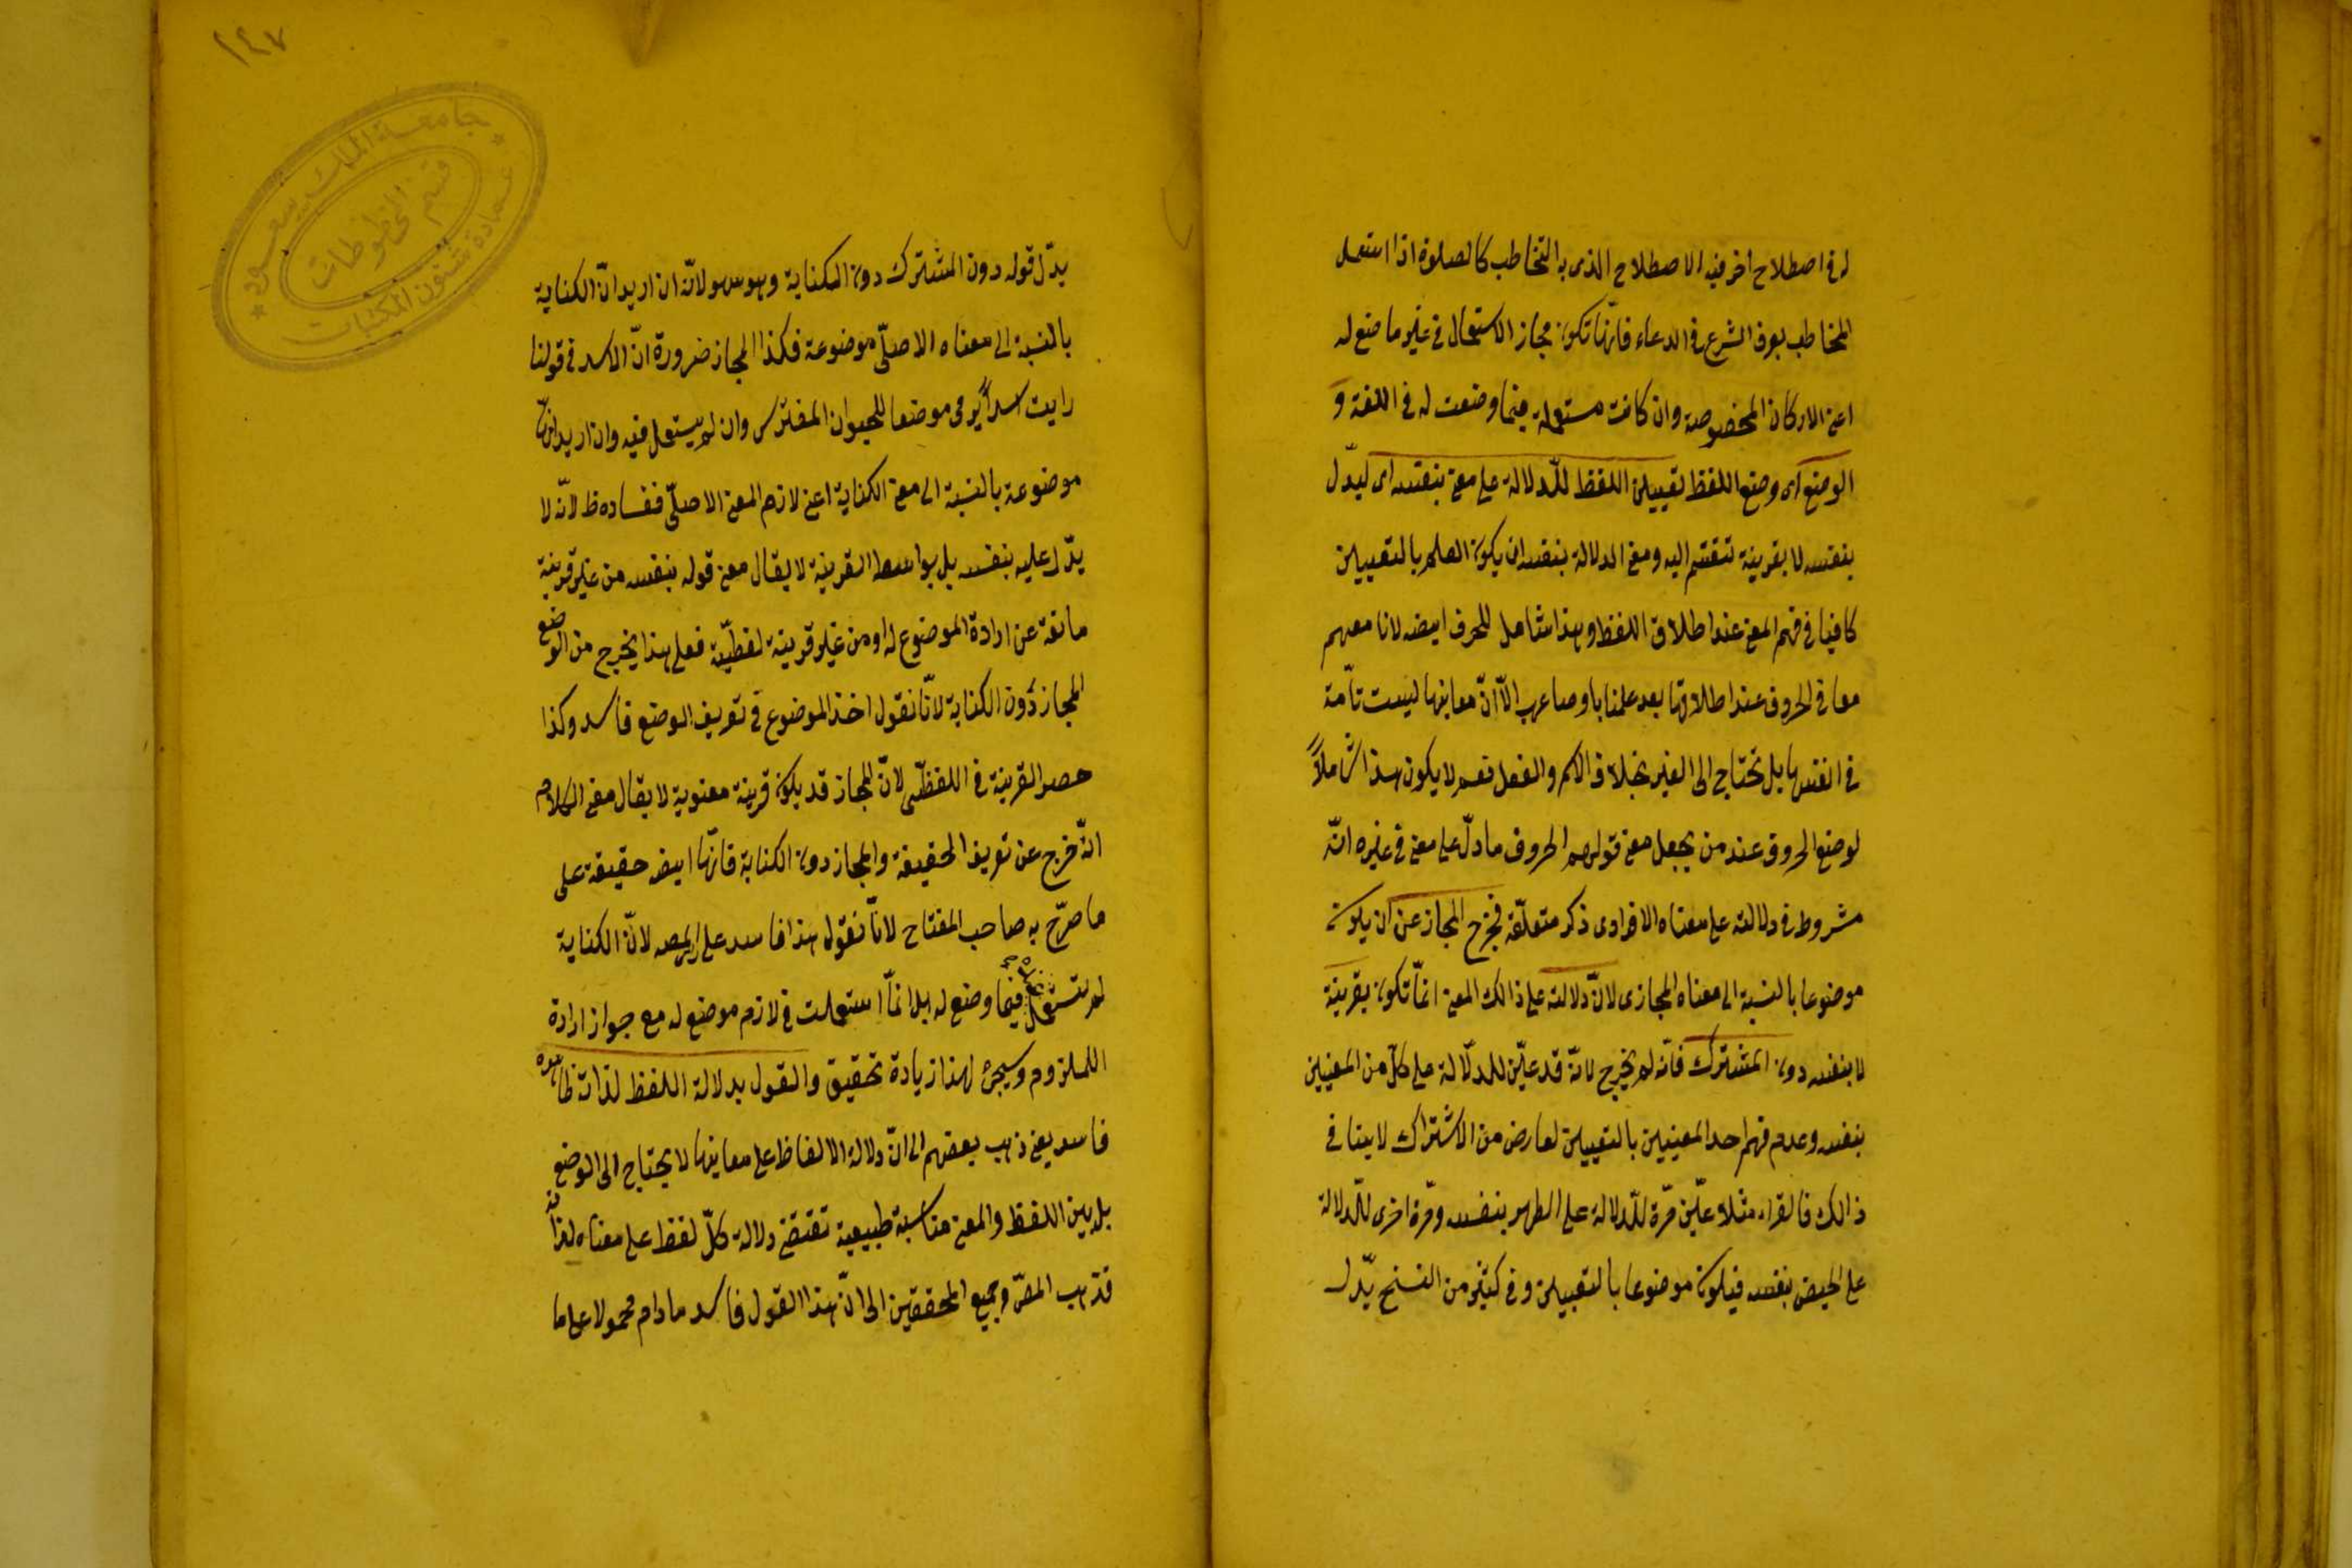 له فى اصطلاح اخر فيه الاصطلاح الذى به التخاطب كالصلوة اذا استعمل
المخاطب بعرف الشرع فى الدعاء فانها تكون مجاز الاستعمال فى غير ما ضع له
اعنى الاركان المخصوصة وان كانت مستعملة فيما وضعت له فى اللغة و
الوضع اى وضع اللفظ تعيين اللفظ للدلالة على معنى بنفسه اى ليدل
بنفسه لا بقرينة تنضم اليه ومعنى الدلالة بنفسه ان يكون العلم بالتعيين
كافيا فى فهم المعنى عند اطلاق اللفظ وهذا شامل للحرف ايضا لانا معهم
معانى الحروف عند اطلاقها بعد علمنا باوضاعها الا ان معانيها ليست تامة
فى انفسها بل تحتاج الى الغير بخلاف الاسم والفعل نعم لا يكون هذا شاملاً
لوضع الحروف عند من يجعل معنى قولهم الحروف ما دل على معنى فى غيره انه
مشروط فى دلالته على معناه الافرادى ذكر متعلقه فخرج المجاز عن ان يكون
موضوعا بالنسبة الى معناه المجازى لان دلالته على ذالك المعنى انما تكون بقرينة
لا بنفسه دون المشترك فانه لم يخرج لانه قد عين للدلالة على كل من المعنيين
بنفسه وعدم فهم احد المعنيين بالتعيين لعارض من الاشتراك لا ينافى
ذالك فالقراء مثلا عين مرة للدلالة على الطهر بنفسه ومرة اخرى للدلالة
على الحيض بنفسه فيكون موضوعا بالتعيين وفى كثير من النسخ يدل
١٤٧
جامعة الملك سعود
عمادة شئون المكتبات
قسم المخطوطات
يدل قوله دون المشترك دون الكناية وهو سهو لانه ان اريد ان الكناية
بالنسبة الى معناه الاصلى موضوعة فكذا المجاز ضرورة ان الاسد فى قولنا
رايت اسداً يرمى موضعا للحيوان المفترس وان لم يستعمل فيه وان اريد انها
موضوعة بالنسبة الى معنى الكناية اعنى لازم المعنى الاصلى ففساده ظ لانه لا
يدل عليه بنفسه بل بواسطة القرينة لا يقال معنى قوله بنفسه من غير قرينة
مانعة عن ارادة الموضوع له او من غير قرينة لفظية فعلى هذا يخرج من الوضع
المجاز دون الكناية لانا نقول اخذ الموضوع فى تعريف الوضع فاسد وكذا
حصر القرينة فى اللفظى لان المجاز قد يكون قرينة معنوية لا يقال معنى الكلام
انه خرج عن تعريف الحقيقة والمجاز دون الكناية فانها ايضا حقيقة على
ما صرح به صاحب المفتاح لانا نقول هذا فاسد على راى المص لان الكناية
لم تستعمل فيما وضع له بل انما استعملت فى لازم موضع له مع جواز ارادة
الملزوم وسيجئ لهذا زيادة تحقيق والقول بدلالة اللفظ لذاته ظاهره
فاسد يعنى ذهب بعضهم الى ان دلالة الالفاظ على معانيها لا يحتاج الى الوضع
بل بين اللفظ والمعنى مناسبة طبيعية تقتضى دلالة كل لفظ على معناه لذاته
فذهب المص وجميع المحققين الى ان هذا القول فاسد مادام محمولا على ما